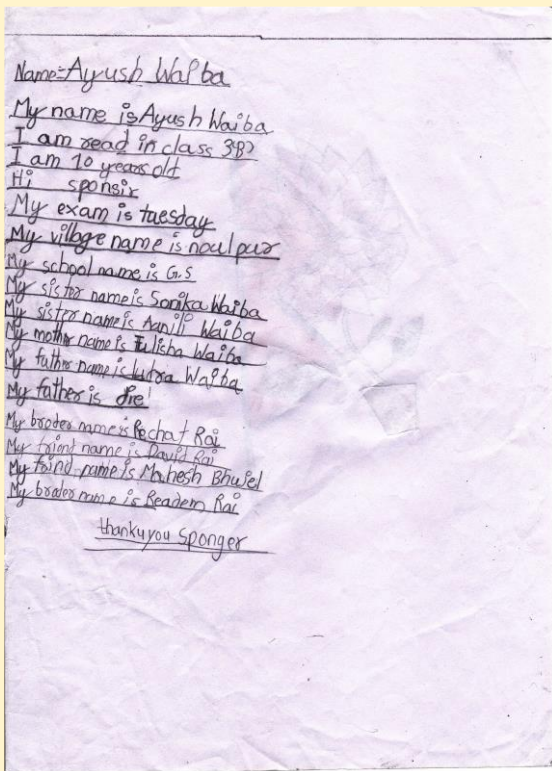 Name:-Ayush Waiba
My name is Ayush Waiba
I am read in class 3B?
I am 10 years old
Hi sponsir
My exam is tuesday
My village name is noulpur
My school name is G.S
My sister name is Sonika Waiba
My sister name is Aanili Waiba
My mother name is Tulisha Waiba
My father name is lutra Waiba
My father is die!
My broder name is Rai
My friend name is David Rai
My frind name is Mahesh Bhujel
My broder name is Readem Rai
thankuyou sponger